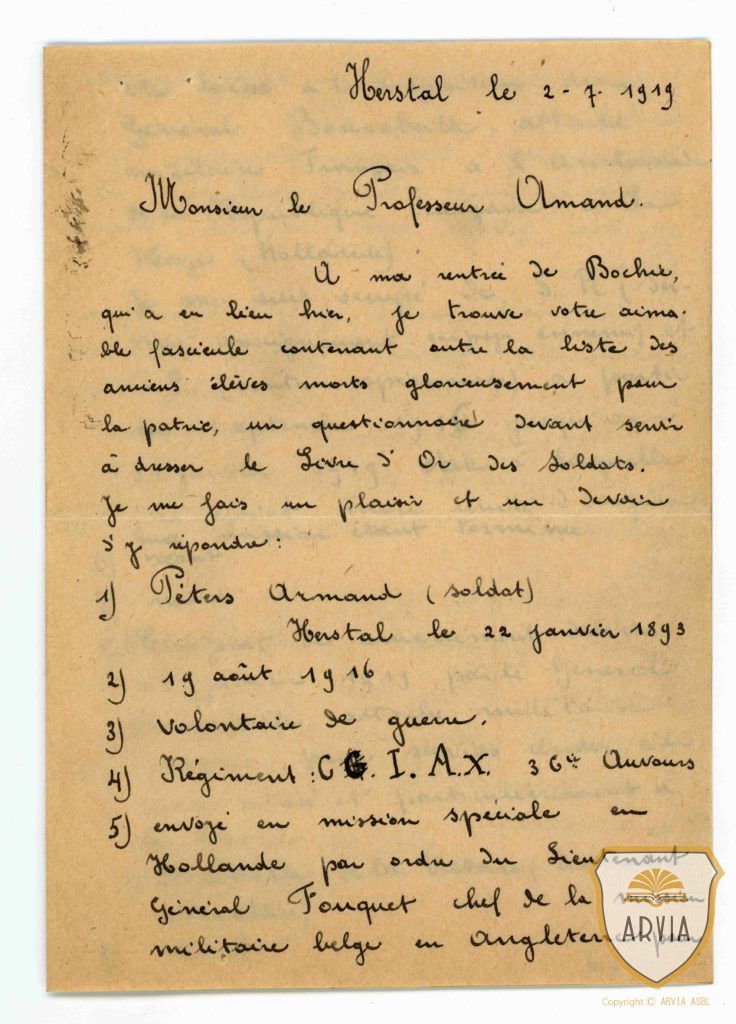 Herstal le 2-7-1919
Monsieur le Professeur Amand.
A ma rentrée de Bochie,
qui a eu lieu hier, je trouve votre aima-
ble fascicule contenant outre la liste des
anciens élèves morts glorieusement pour
la patrie, un questionnaire devant servir
à dresser le Livre d'Or des Soldats.
Je me fais un plaisir et un devoir
d'y répondre :
1) Péters Armand (soldat)
Herstal le 22 janvier 1893
2) 19 août 1916
3) volontaire de guerre.
4) Régiment : C. I. A. X. 3 Cie Auvours
5) envoyé en mission spéciale en
Hollande par ordre du Lieutenant
Général Fouquet chef de la mission
militaire belge en Angleterre pour
ARVIA
Copyright © ARVIA ASBL